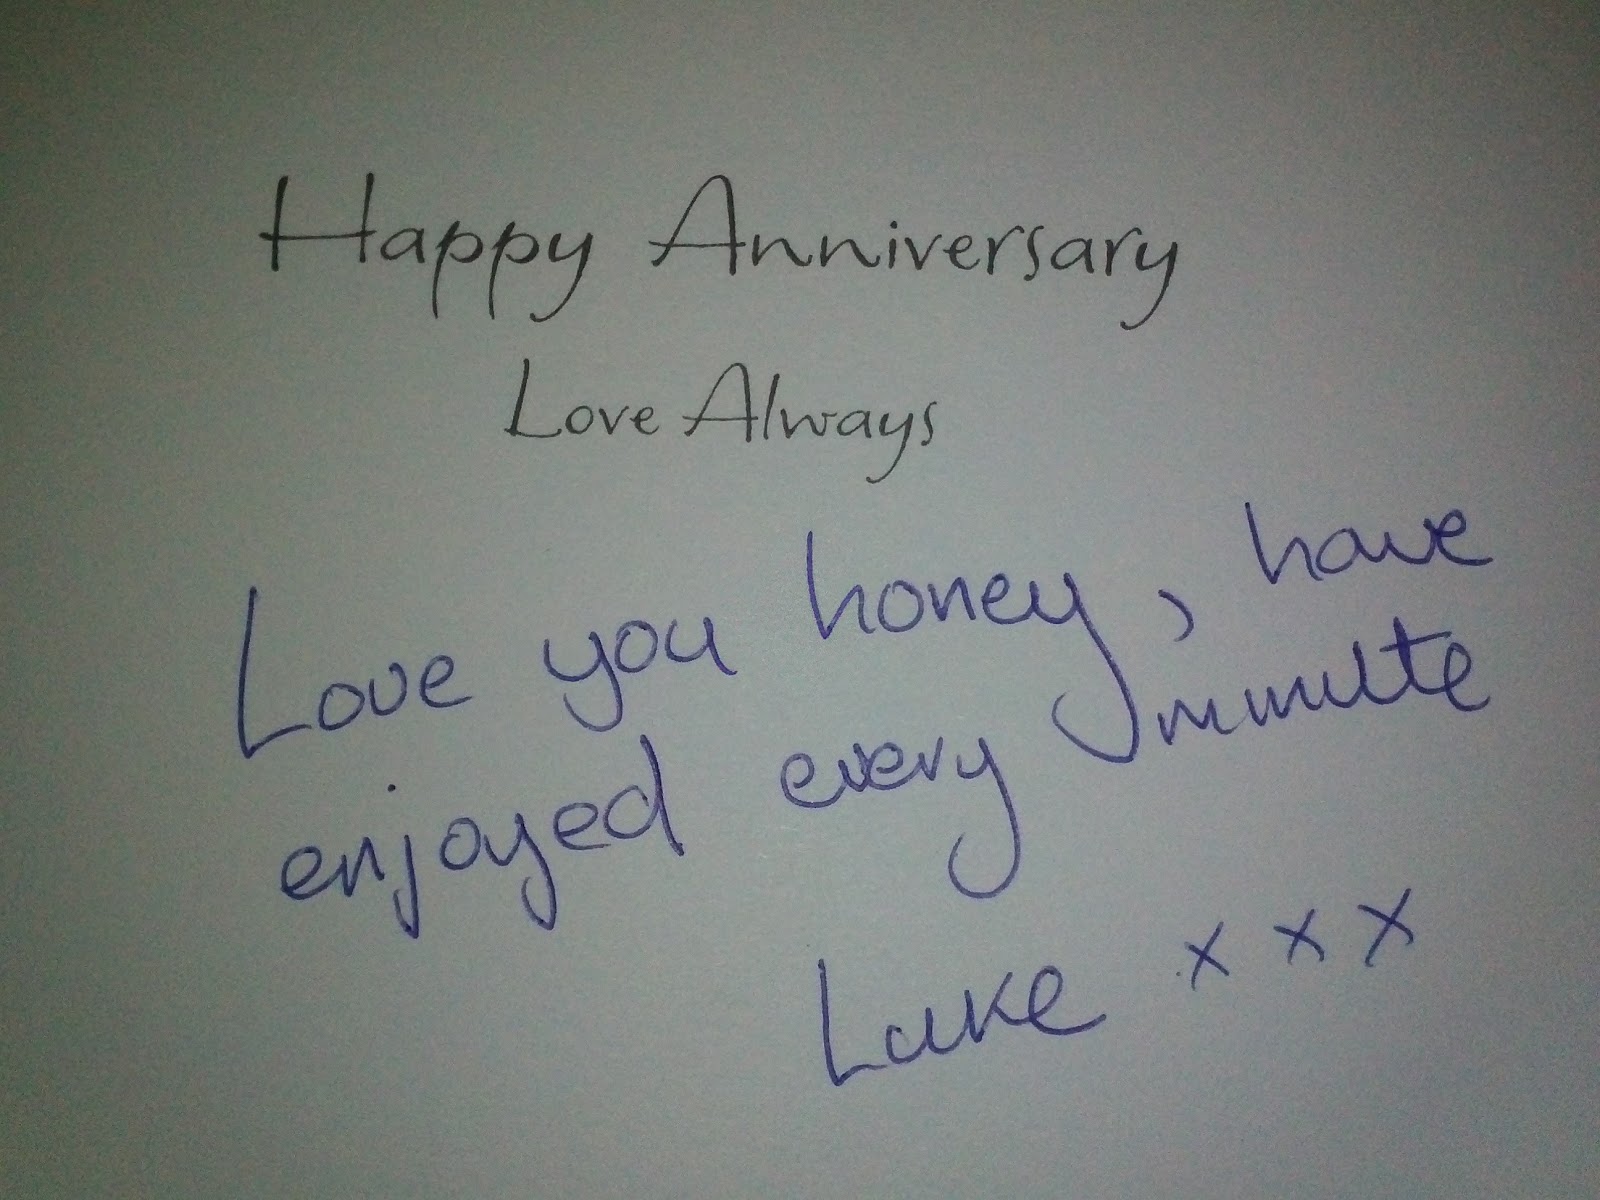 Happy Anniversary
Love Always
Love you honey, have
enjoyed every minute
Luke x x x